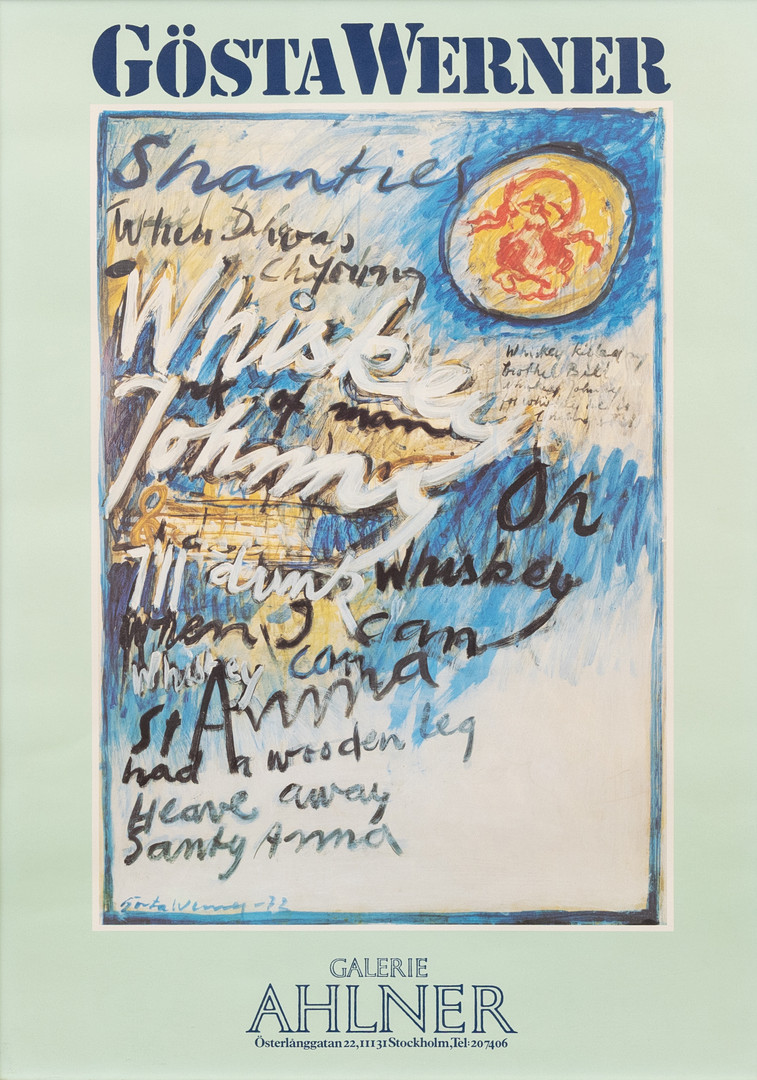 GÖSTA WERNER
Shanties
When I was
Young
Whiskey
Whiskey Killed my
brother Bill
Whiskey Johnny
of man
Johnny
Oh
I'll drink Whiskey
when I can
Whiskey can
St Anna
had a wooden leg
Heave away
Santy Anna
Gösta Werner -72
GALERIE
AHLNER
Österlånggatan 22, 111 31 Stockholm, Tel: 20 74 06